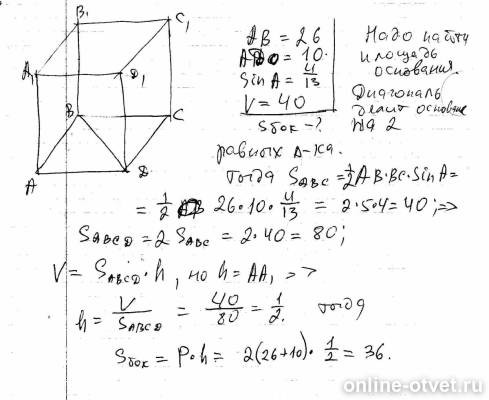 B₁ C₁
A₁ D₁
B C
A D
AB = 26
AD = 10.
sin A = 4/13
V = 40
Sбок - ?
Надо найти
площадь
основания.
Диагональ
делит основание
на 2
равных Δ-ка.
Тогда S_ABC = 1/2 AB·BC·sin A =
= 1/2 26·10·4/13 = 2·5·4 = 40; =>
S_ABCD = 2 S_ABC = 2·40 = 80;
V = S_ABCD·h, но h = AA₁ =>
h = V/S_ABCD = 40/80 = 1/2. Тогда
Sбок = P·h = 2(26+10)·1/2 = 36.
online-otvet.ru